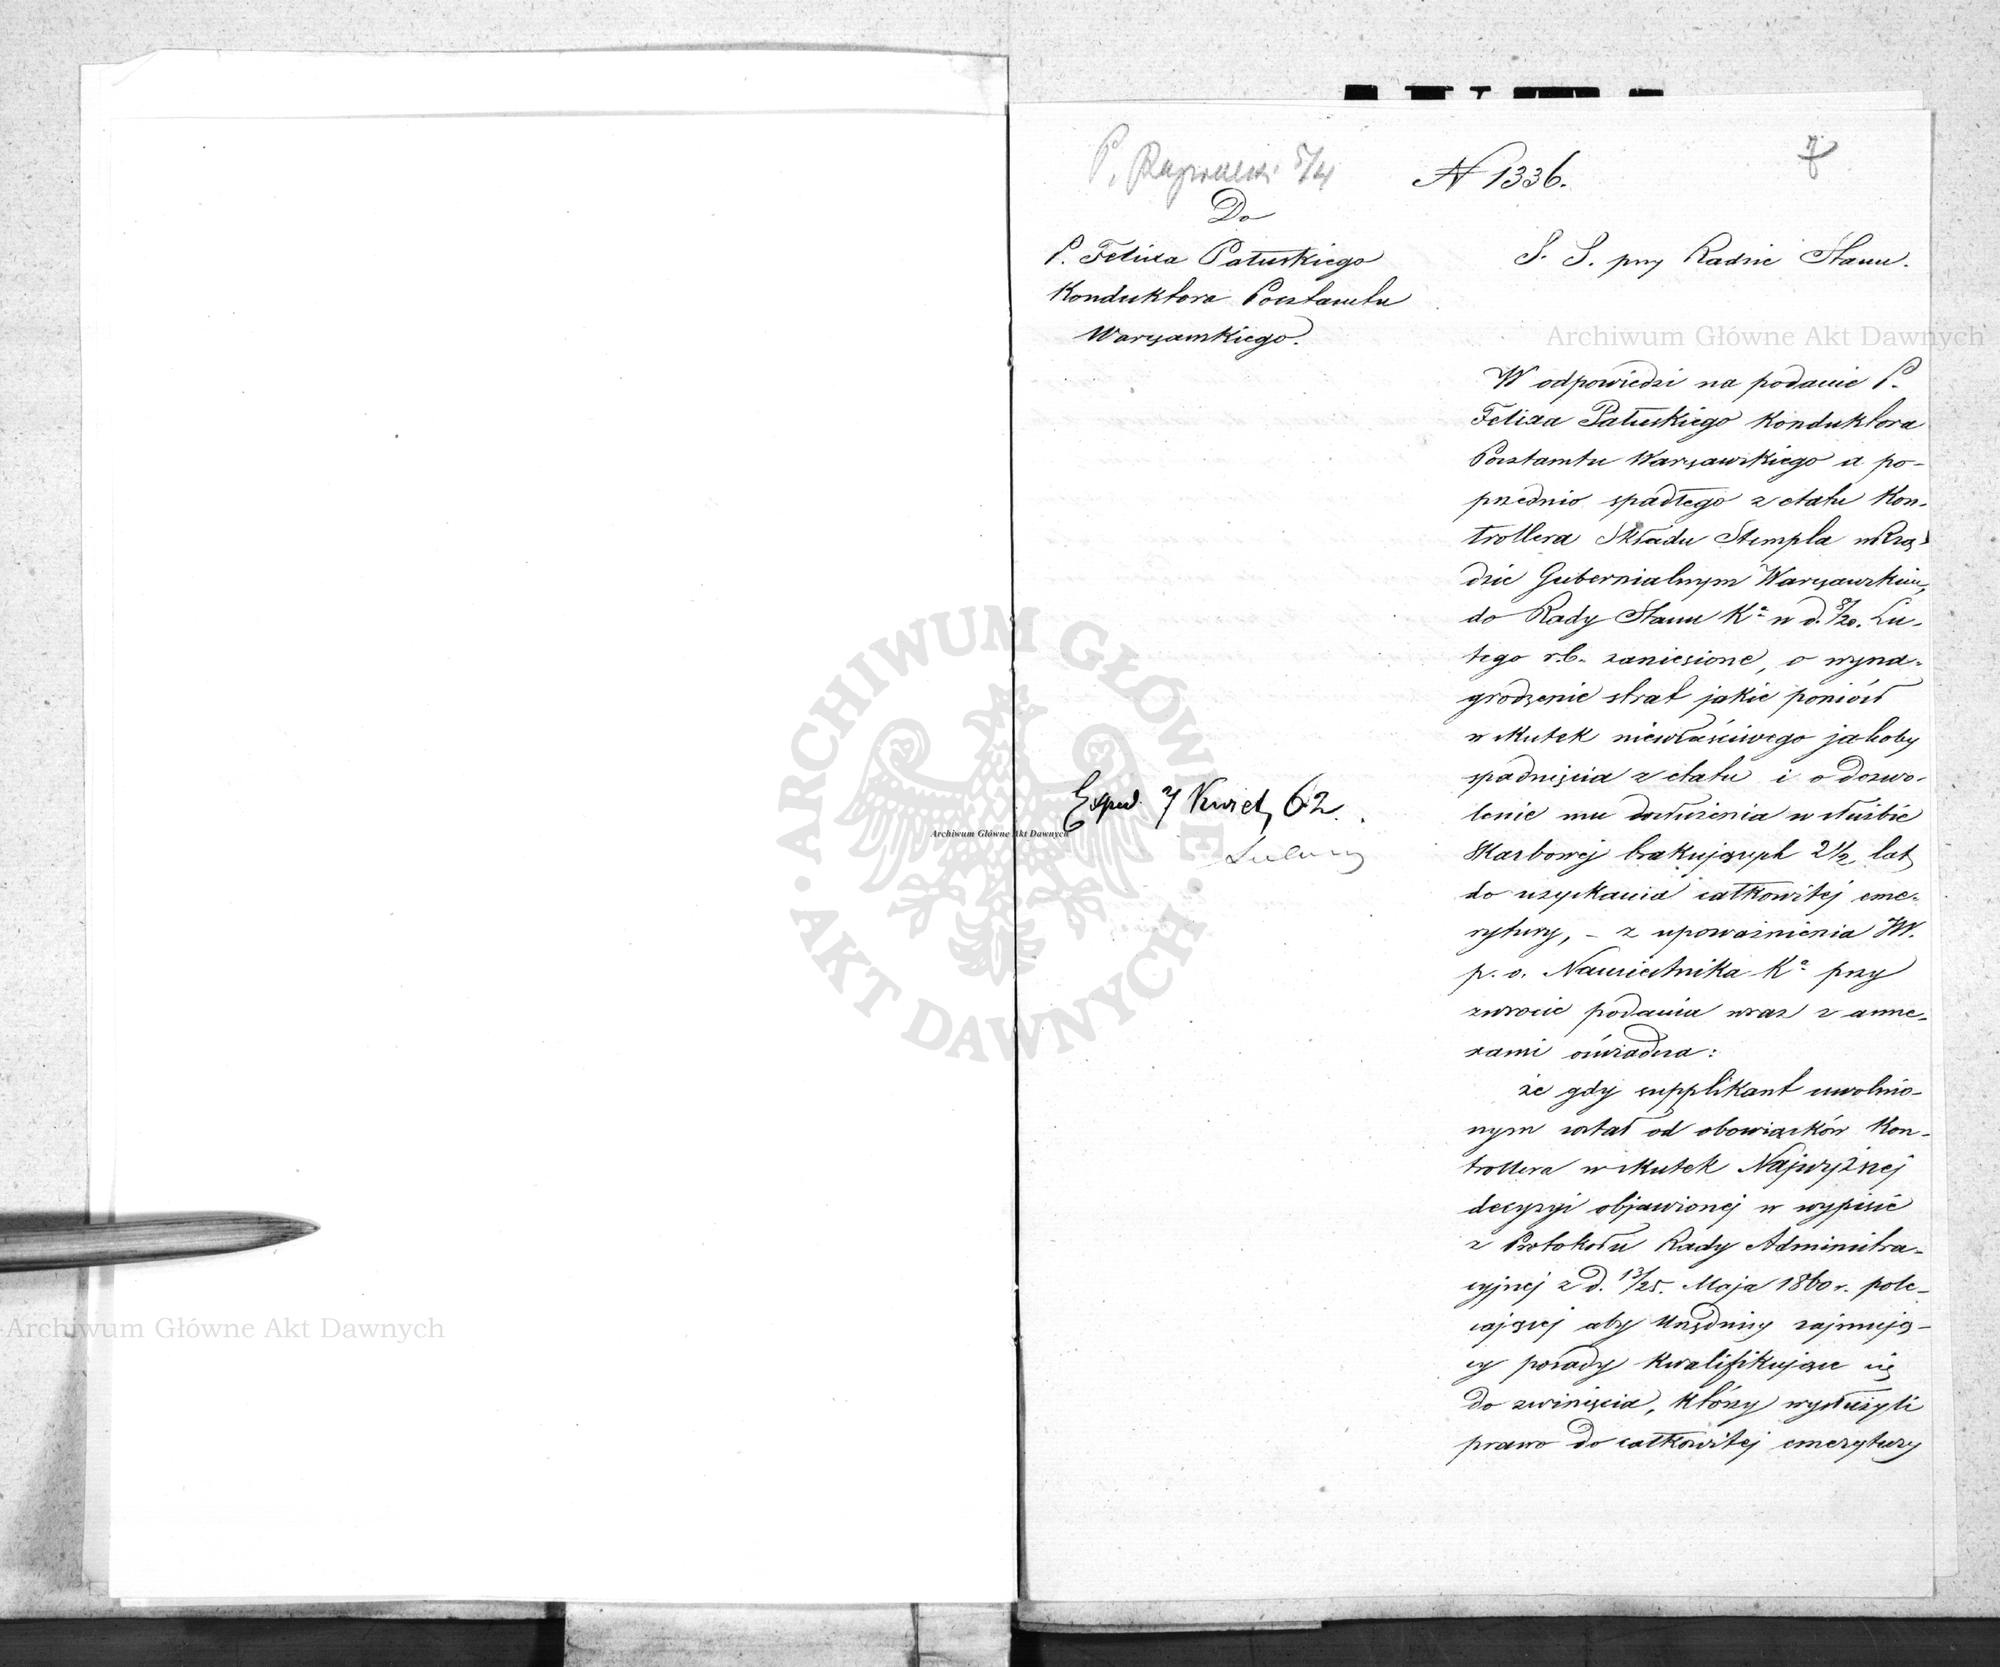 N 1336.
7
Do
P. Felixa Pałuskiego
Konduktora Pocztamtu
Warszawskiego.
S. S. przy Radzie Stanu.
W odpowiedzi na podanie P.
Felixa Pałuskiego Konduktora
Pocztamtu Warszawskiego a po-
przednio spadłego z etatu Kon-
trollera Składu Stempla w Rzą-
dzie Gubernialnym Warszawskim,
do Rady Stanu Ka w d. 8/20. Lu-
tego r.b. zaniesione, o wyna-
grodzenie strat jakie poniósł
w skutek niewłaściwego jakoby
spadnięcia z etatu i o dozwo-
lenie mu dosłużenia w służbie
Skarbowej brakujących 2 1/2 lat
do uzyskania całkowitej eme-
rytury, – z upoważnienia JW.
p. o. Namiestnika Ka przy
zwrocie podania wraz z anne-
xami oświadcza:
że gdy supplikant uwolnio-
nym został od obowiązków Kon-
trollera w skutek Najwyższej
decyzyi objawionej w wypisie
z Protokołu Rady Administra-
cyjnej z d. 13/25. Maja 1860 r. pole-
cającej aby Urzędnicy zajmują-
cy posady kwalifikujące się
do zwinięcia, którzy wysłużyli
prawo do całkowitej emerytury
Exped. 7 Kwiet. 62.
Archiwum Główne Akt Dawnych
Archiwum Główne Akt Dawnych
Archiwum Główne Akt Dawnych
ARCHIWUM GŁÓWNE
AKT DAWNYCH